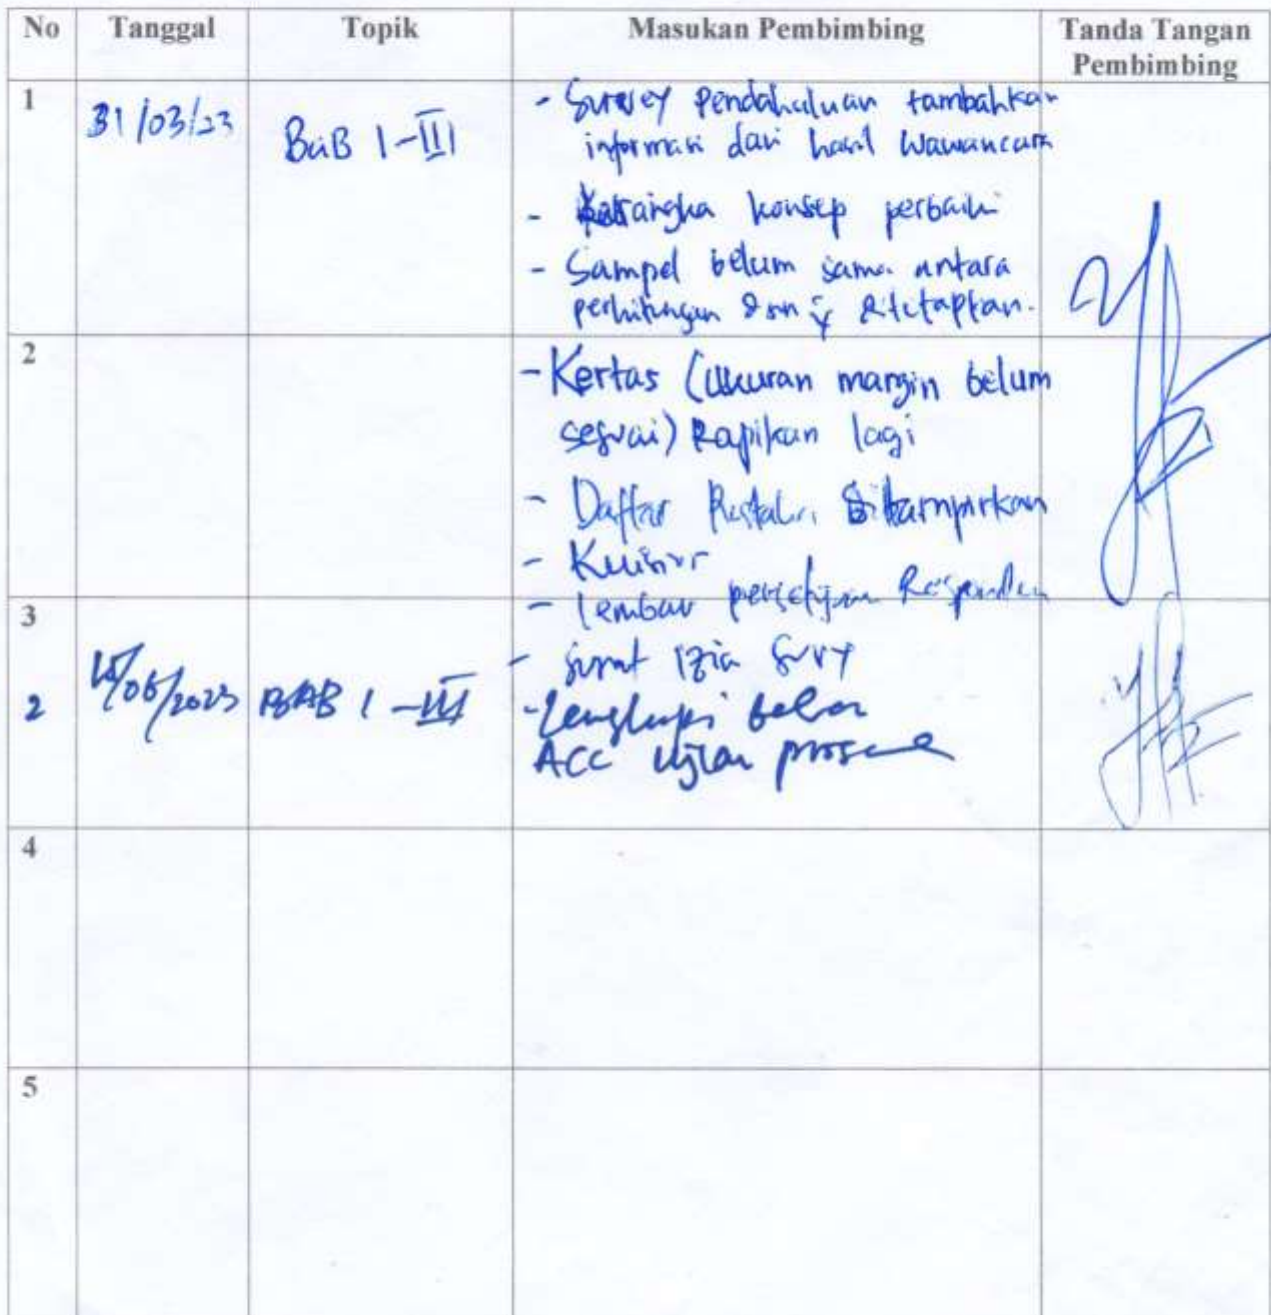 No Tanggal Topik Masukan Pembimbing Tanda Tangan Pembimbing
1 31/03/23 BAB I-III - Survey Pendahuluan tambahkan
informasi dari hasil wawancara
- Kerangka konsep perbaiki
- Sampel belum sama antara
perhitungan dan yg ditetapkan.
2
- Kertas (Ukuran margin belum
sesuai) Rapikan lagi
- Daftar Pustaka dilampirkan
- Kuisior
3
- lembar persetujuan Responden
- surat izin survy
2 /2023 BAB I-III - Lengkapi
ACC ujian
4
5